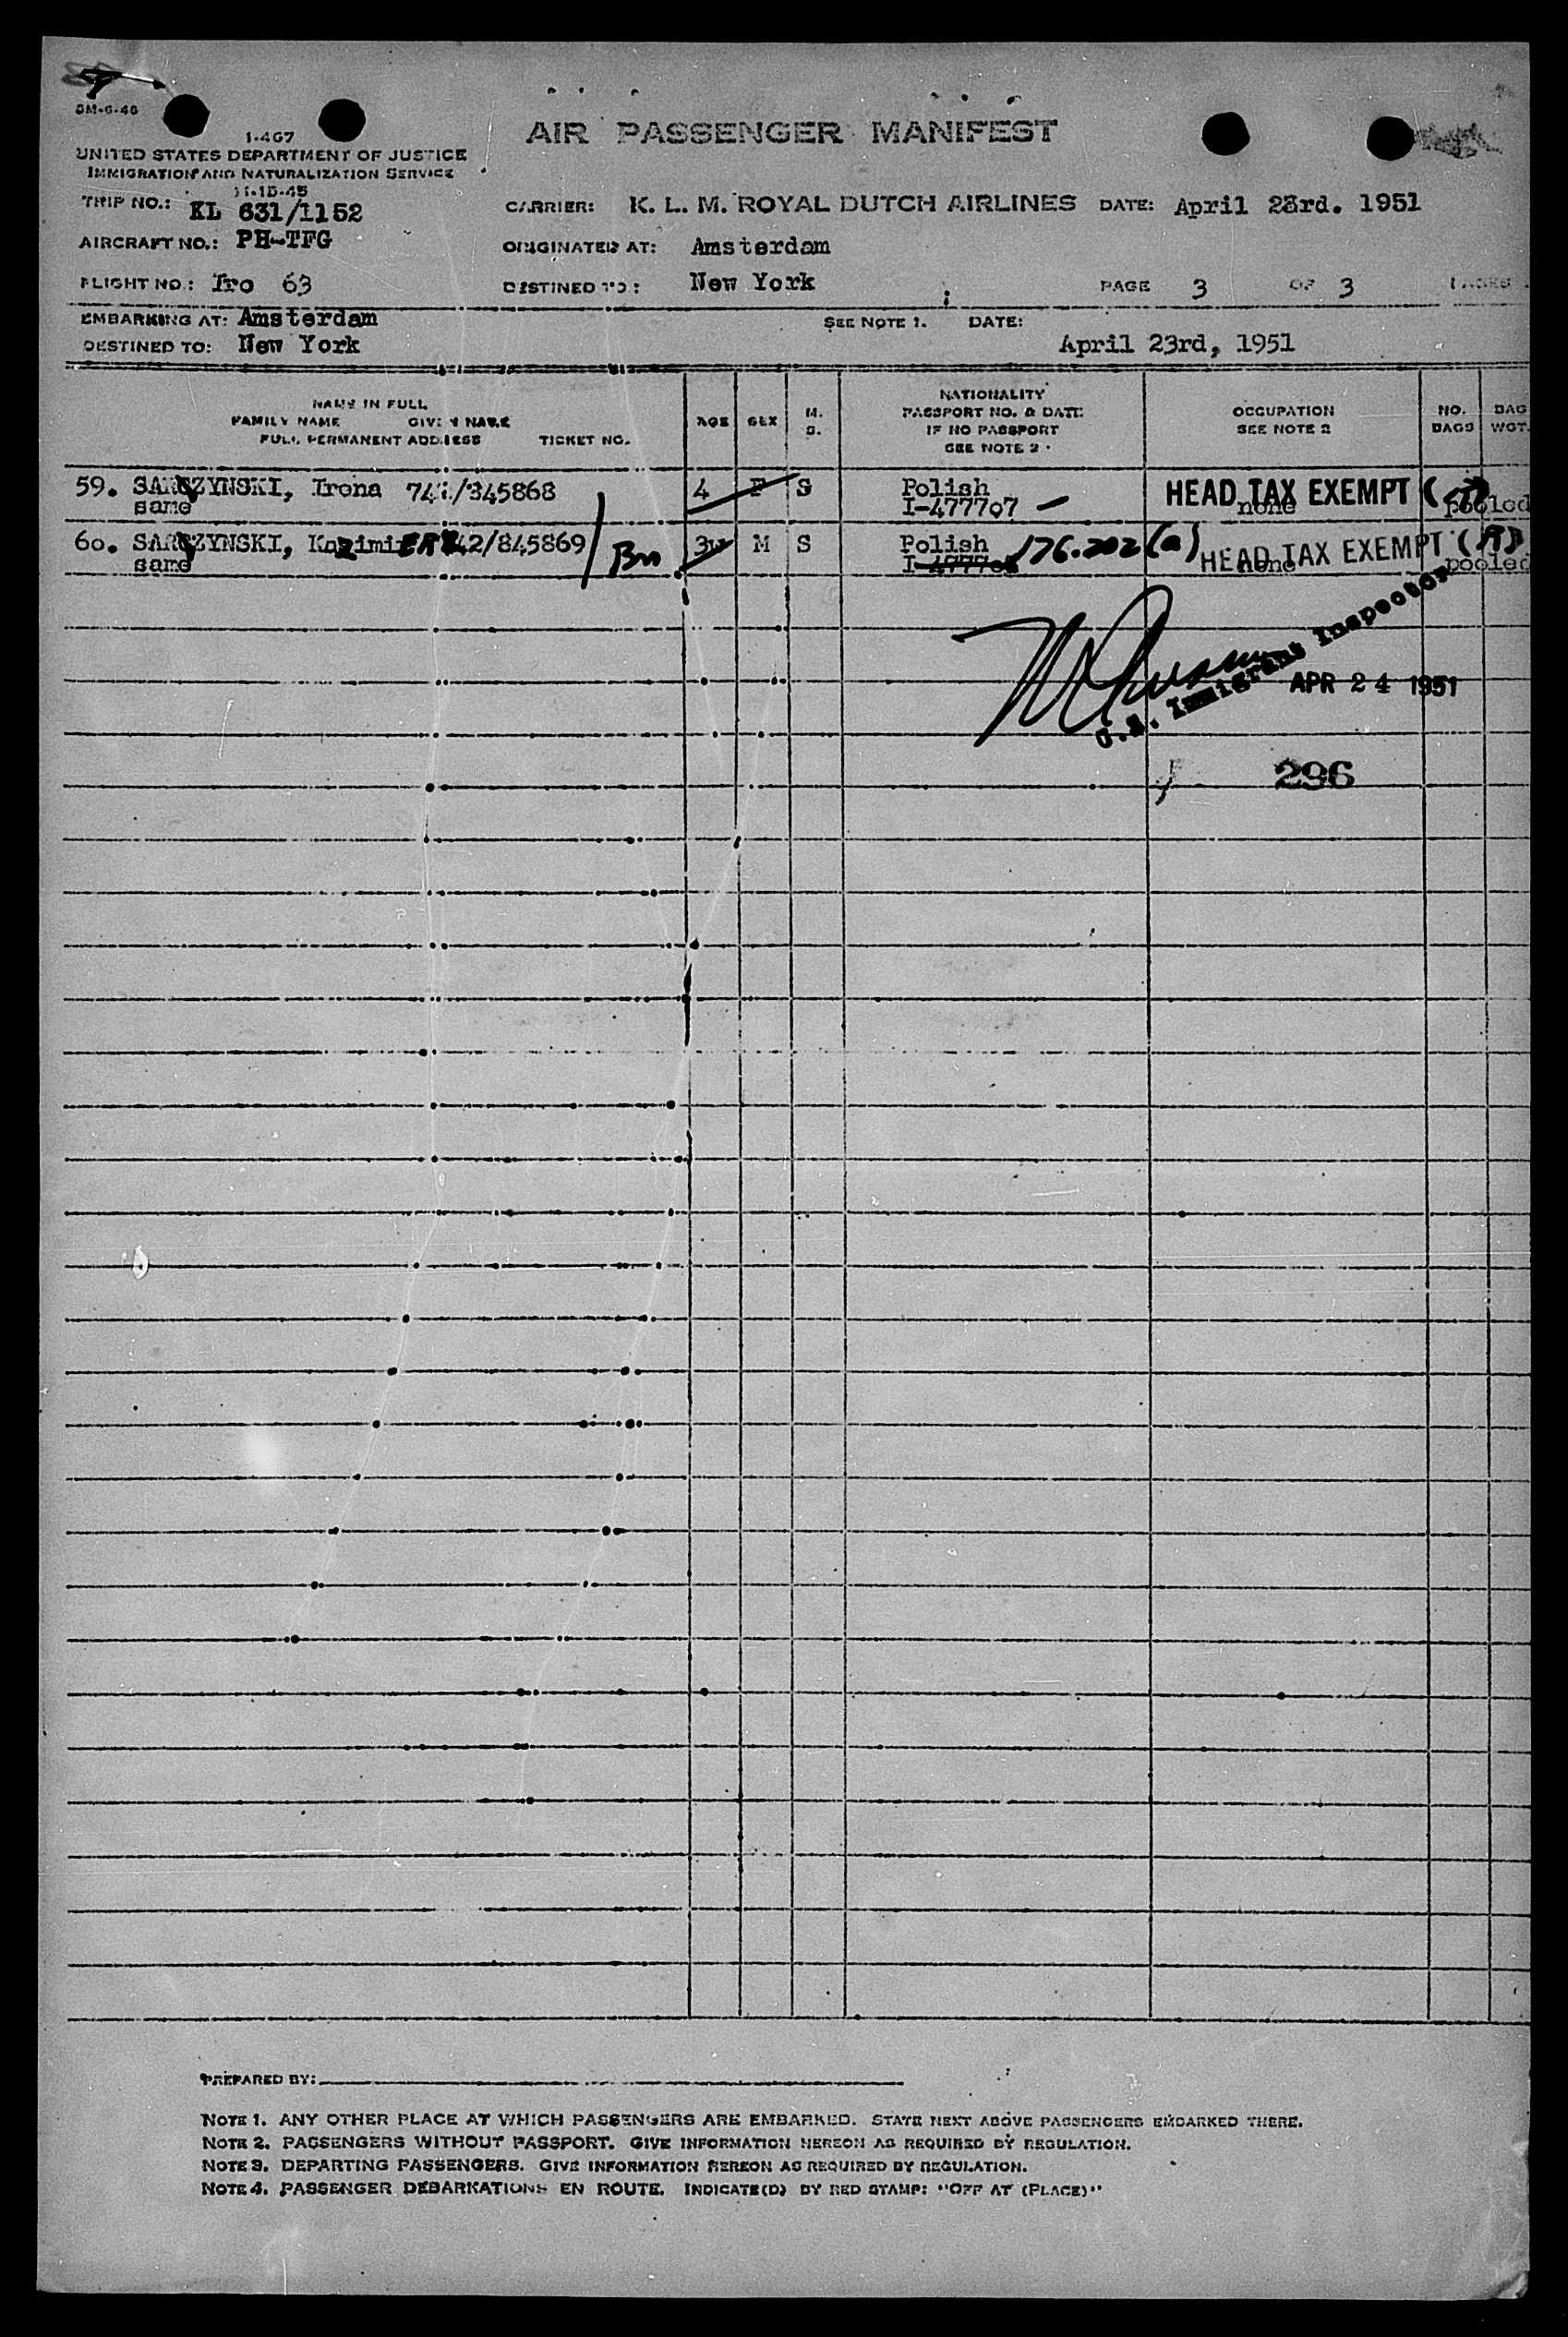 AIR PASSENGER MANIFEST
I-467
UNITED STATES DEPARTMENT OF JUSTICE
IMMIGRATION AND NATURALIZATION SERVICE
11-15-45
TRIP NO.: KL 631/1152
CARRIER: K. L. M. ROYAL DUTCH AIRLINES DATE: April 23rd. 1951
AIRCRAFT NO.: PH-TFG
ORIGINATED AT: Amsterdam
FLIGHT NO.: Iro 63
DESTINED TO: New York
PAGE 3 OF 3
EMBARKING AT: Amsterdam
SEE NOTE 1. DATE:
DESTINED TO: New York
April 23rd, 1951
NAME IN FULL
FAMILY NAME GIVEN NAME
FULL PERMANENT ADDRESS TICKET NO.
AGE SEX M. S.
NATIONALITY
PASSPORT NO. & DATE
IF NO PASSPORT
SEE NOTE 2
OCCUPATION
SEE NOTE 2
NO. BAGS
BAG WGT.
59. Irena F S Polish HEAD TAX EXEMPT
same I-477707 none pooled
60. M S Polish 176.202(a) HEAD TAX EXEMPT
same none pooled
U.S. Immigrant Inspector
APR 24 1951
296
PREPARED BY:
NOTE 1. ANY OTHER PLACE AT WHICH PASSENGERS ARE EMBARKED. STATE NEXT ABOVE PASSENGERS EMBARKED THERE.
NOTE 2. PASSENGERS WITHOUT PASSPORT. GIVE INFORMATION HEREON AS REQUIRED BY REGULATION.
NOTE 3. DEPARTING PASSENGERS. GIVE INFORMATION HEREON AS REQUIRED BY REGULATION.
NOTE 4. PASSENGER DEBARKATIONS EN ROUTE. INDICATE(D) BY RED STAMP: "OFF AT (PLACE)"